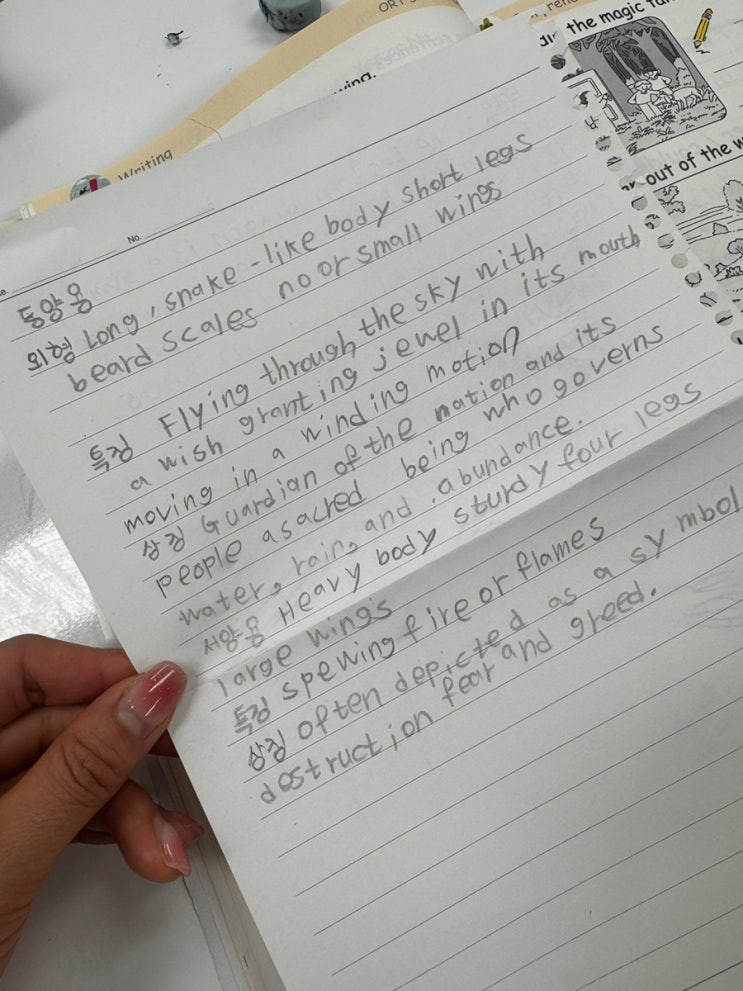 ORT
wing.
Writing
the magic
out of the w
No.
동양용
외형 Long, snake-like body short legs
beard scales no or small wings
특징 Flying through the sky with
a wish granting jewel in its mouth
moving in a winding motion
상징 Guardian of the nation and its
people a sacred being who governs
water, rain, and abundance.
서양용 Heavy body sturdy four legs
large wings
특징 spewing fire or flames
상징 often depicted as a symbol
dostruction fear and greed.